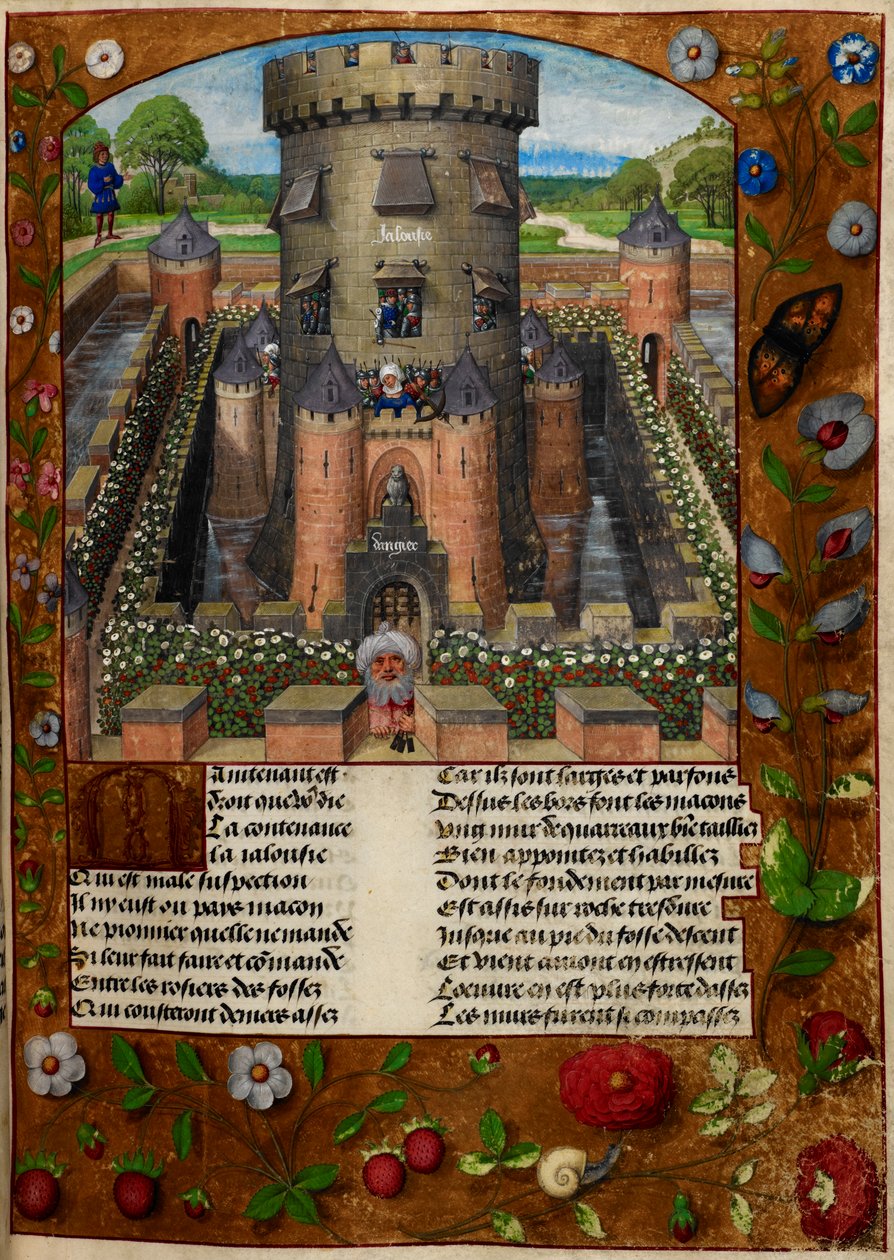 Jalousie
dangier
Maintenant est
Droit que vo9 die
La contenance
la ialousie
Qui est male suspection
Il ny eust ou pays macon
Ne pionnier quelle ne mande
Si leur fait faire et cõmande
Entre les rosiers des fossez
Qui cousteront deniers assez
Car ilz sont larges et parfons
Dessus les bors font les macons
Vng mur de quarreaux biē tailliez
Bien appointez et habillez
Dont le fondement par mesure
Est assis sur roche tres dure
Jusque au pie du fosse descent
Et vient amont en estressent
Loeuure en est plus forte dassez
Les murs furent si compassez